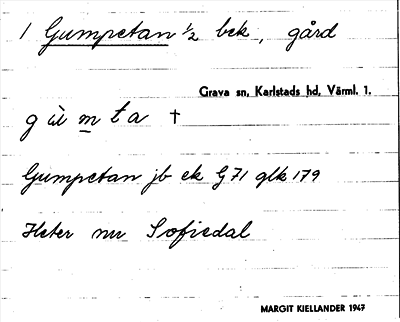 1 Gumpetan 1/2 bck, gård
Grava sn, Karlstads hd, Värml. 1.
g ù m t a †
Gumpetan jb ek G 71 glk 179
Heter nu Sofiedal
MARGIT KIELLANDER 1947